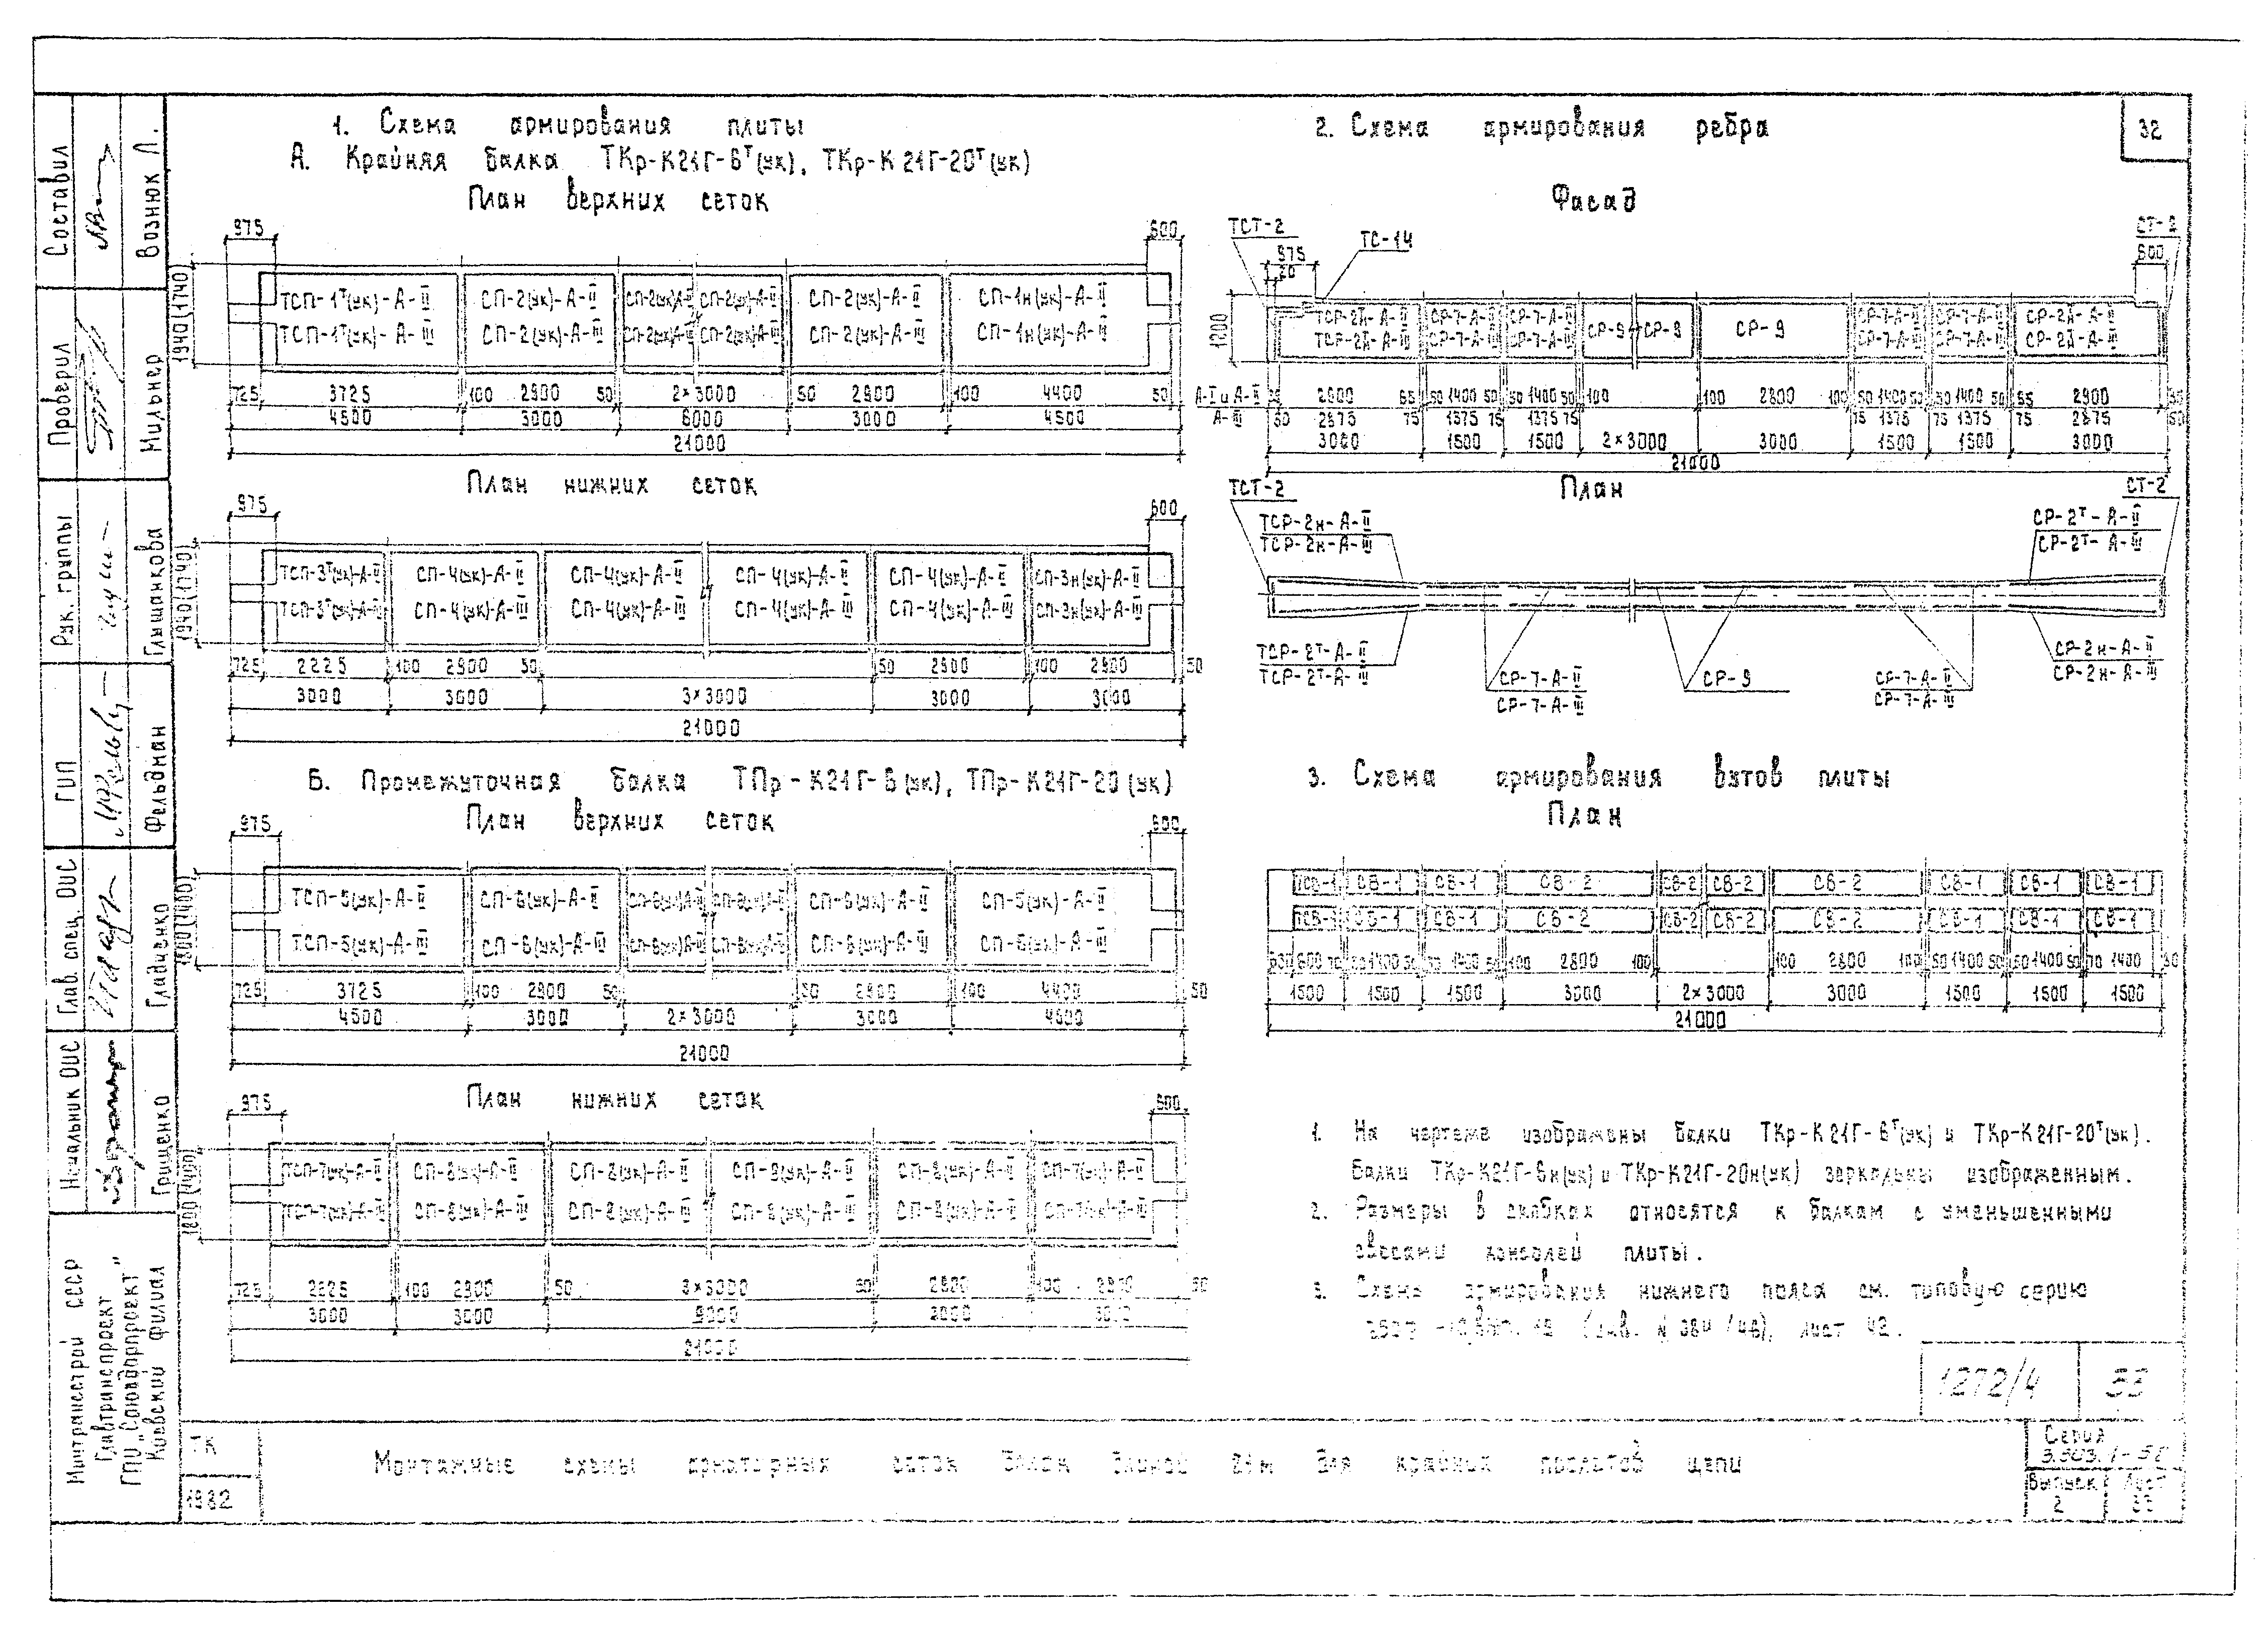 32
1. Схема армирования плиты
А. Крайняя балка ТКр-К21Г-6ᵀ(ук), ТКр-К21Г-20ᵀ(ук)
План верхних сеток
975 600
ТСП-1ᵀ(ук)-А-II СП-2(ук)-А-II СП-2(ук)А-II СП-2(ук)-А-II СП-2(ук)-А-II СП-1н(ук)-А-II
ТСП-1ᵀ(ук)-А-III СП-2(ук)-А-III СП-2(ук)А-III СП-2(ук)-А-III СП-2(ук)-А-III СП-1н(ук)-А-III
1940(1740)
725 3725 100 2900 50 2×3000 50 2900 100 4400 50
4500 3000 6000 3000 4500
21000
План нижних сеток
975 600
ТСП-3ᵀ(ук)-А-II СП-4(ук)-А-II СП-4(ук)-А-II СП-4(ук)-А-II СП-4(ук)-А-II СП-3н(ук)-А-II
ТСП-3ᵀ(ук)-А-III СП-4(ук)-А-III СП-4(ук)-А-III СП-4(ук)-А-III СП-4(ук)-А-III СП-3н(ук)-А-III
1940(1740)
725 2225 100 2900 50 50 2900 100 2900 50
3000 3000 3×3000 3000 3000
21000
Б. Промежуточная балка ТПр-К21Г-6(ук), ТПр-К21Г-20(ук)
План верхних сеток
975 600
ТСП-5(ук)-А-II СП-6(ук)-А-II СП-6(ук)А-II СП-6(ук)-А-II СП-6(ук)-А-II СП-5(ук)-А-II
ТСП-5(ук)-А-III СП-6(ук)-А-III СП-6(ук)А-III СП-6(ук)-А-III СП-6(ук)-А-III
1800(1400)
725 3725 100 2900 50 50 2900 100 4400 50
4500 3000 2×3000 3000 4500
21000
План нижних сеток
975 600
ТСП-7(ук)-А-II СП-8(ук)-А-II СП-8(ук)-А-II СП-8(ук)-А-II СП-8(ук)-А-II СП-7(ук)-А-II
ТСП-7(ук)-А-III СП-8(ук)-А-III СП-8(ук)-А-III СП-8(ук)-А-III СП-8(ук)-А-III СП-7(ук)-А-III
1800(1400)
725 2225 100 2900 50 3×3000 50 2900 100 2900 50
3000 3000 9000 3000 3000
21000
2. Схема армирования ребра
Фасад
ТСТ-2 ТС-14 СТ-2
975 600
20
ТСР-2н-А-II СР-7-А-II СР-7-А-II СР-9 СР-9 СР-9 СР-7-А-II СР-7-А-II СР-2н-А-II
ТСР-2н-А-III СР-7-А-III СР-7-А-III СР-7-А-III СР-7-А-III СР-2н-А-III
1200
А-I и А-II 2900 65 50 1400 50 50 1400 50 100 100 2800 100 50 1400 50 50 1400 50 65 2900
А-III 50 2875 75 1375 75 1375 75 75 1375 75 1375 75 2875 50
3000 1500 1500 2×3000 3000 1500 1500 3000
21000
План
ТСТ-2 СТ-2
ТСР-2н-А-II СР-2ᵀ-А-II
ТСР-2н-А-III СР-2ᵀ-А-III
ТСР-2ᵀ-А-II СР-2н-А-II
ТСР-2ᵀ-А-III СР-2н-А-III
СР-7-А-II СР-9 СР-7-А-II
СР-7-А-III СР-7-А-III
3. Схема армирования вутов плиты
План
ТСВ-1 СВ-1 СВ-1 СВ-2 СВ-2 СВ-2 СВ-2 СВ-1 СВ-1 СВ-1
ТСВ-1 СВ-1 СВ-1 СВ-2 СВ-2 СВ-2 СВ-2 СВ-1 СВ-1 СВ-1
600 70 1400 50 1400 50 100 2800 100 100 2800 100 50 1400 50 50 1400 50 70 1400
1500 1500 1500 3000 2×3000 3000 1500 1500 1500
21000
1. На чертеже изображены балки ТКр-К21Г-6ᵀ(ук) и ТКр-К21Г-20ᵀ(ук).
Балки ТКр-К21Г-6н(ук) и ТКр-К21Г-20н(ук) зеркальны изображенным.
2. Размеры в скобках относятся к балкам с уменьшенными
свесами консолей плиты.
3. Схема армирования нижнего пояса см. типовую серию
лист 42.
1272/4 33
ТК
1982
Монтажные схемы арматурных сеток балок длиной 21м для крайних пролетов цепи
Серия
3.503.1-
Выпуск Лист
2 33
Составил Вознюк Л.
Проверил Мильнер
Рук. группы Глушанкова
ГИП Фельдман
Глав. спец. ОИС Гладченко
Начальник ОИС Грищенко
Минтрансстрой СССР
Главтранспроект
ГПИ „Союздорпроект"
Киевский филиал